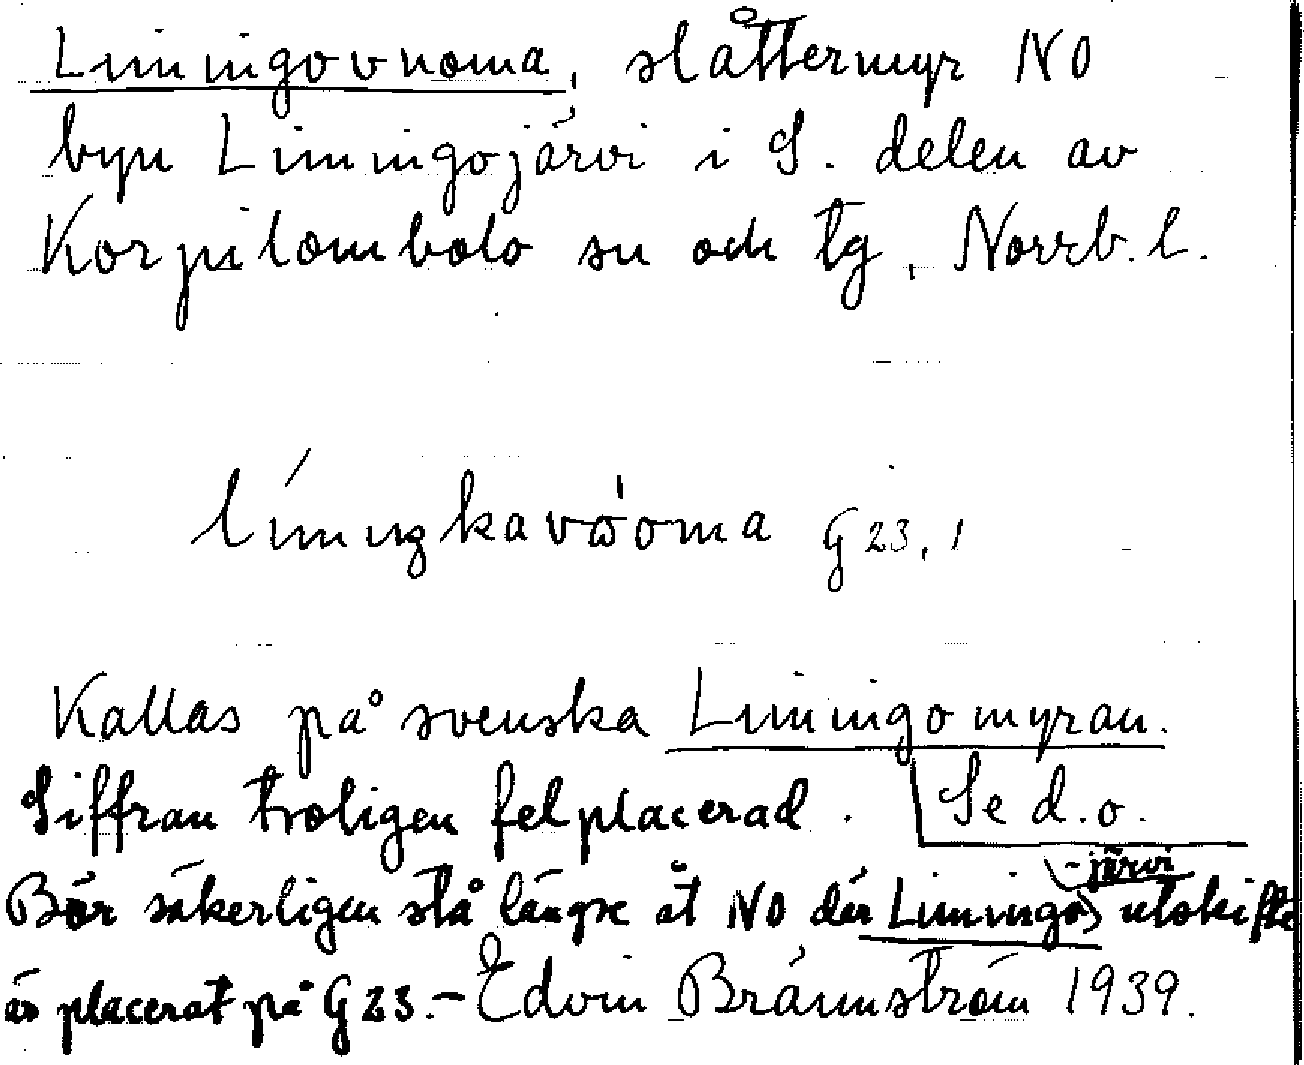 Liiningovuoma, slåttermyr NO
byn Liiningojärvi i S. delen av
Korpilombolo sn och tg, Norrb. l.
G 23, 1
Kallas på svenska Liiningomyran.
Siffran troligen felplacerad. Se d.o.
-järvi
Bör säkerligen stå längre åt NO där Liiningo utskifte
är placerat på G 23. – Edvin Brännström 1939.